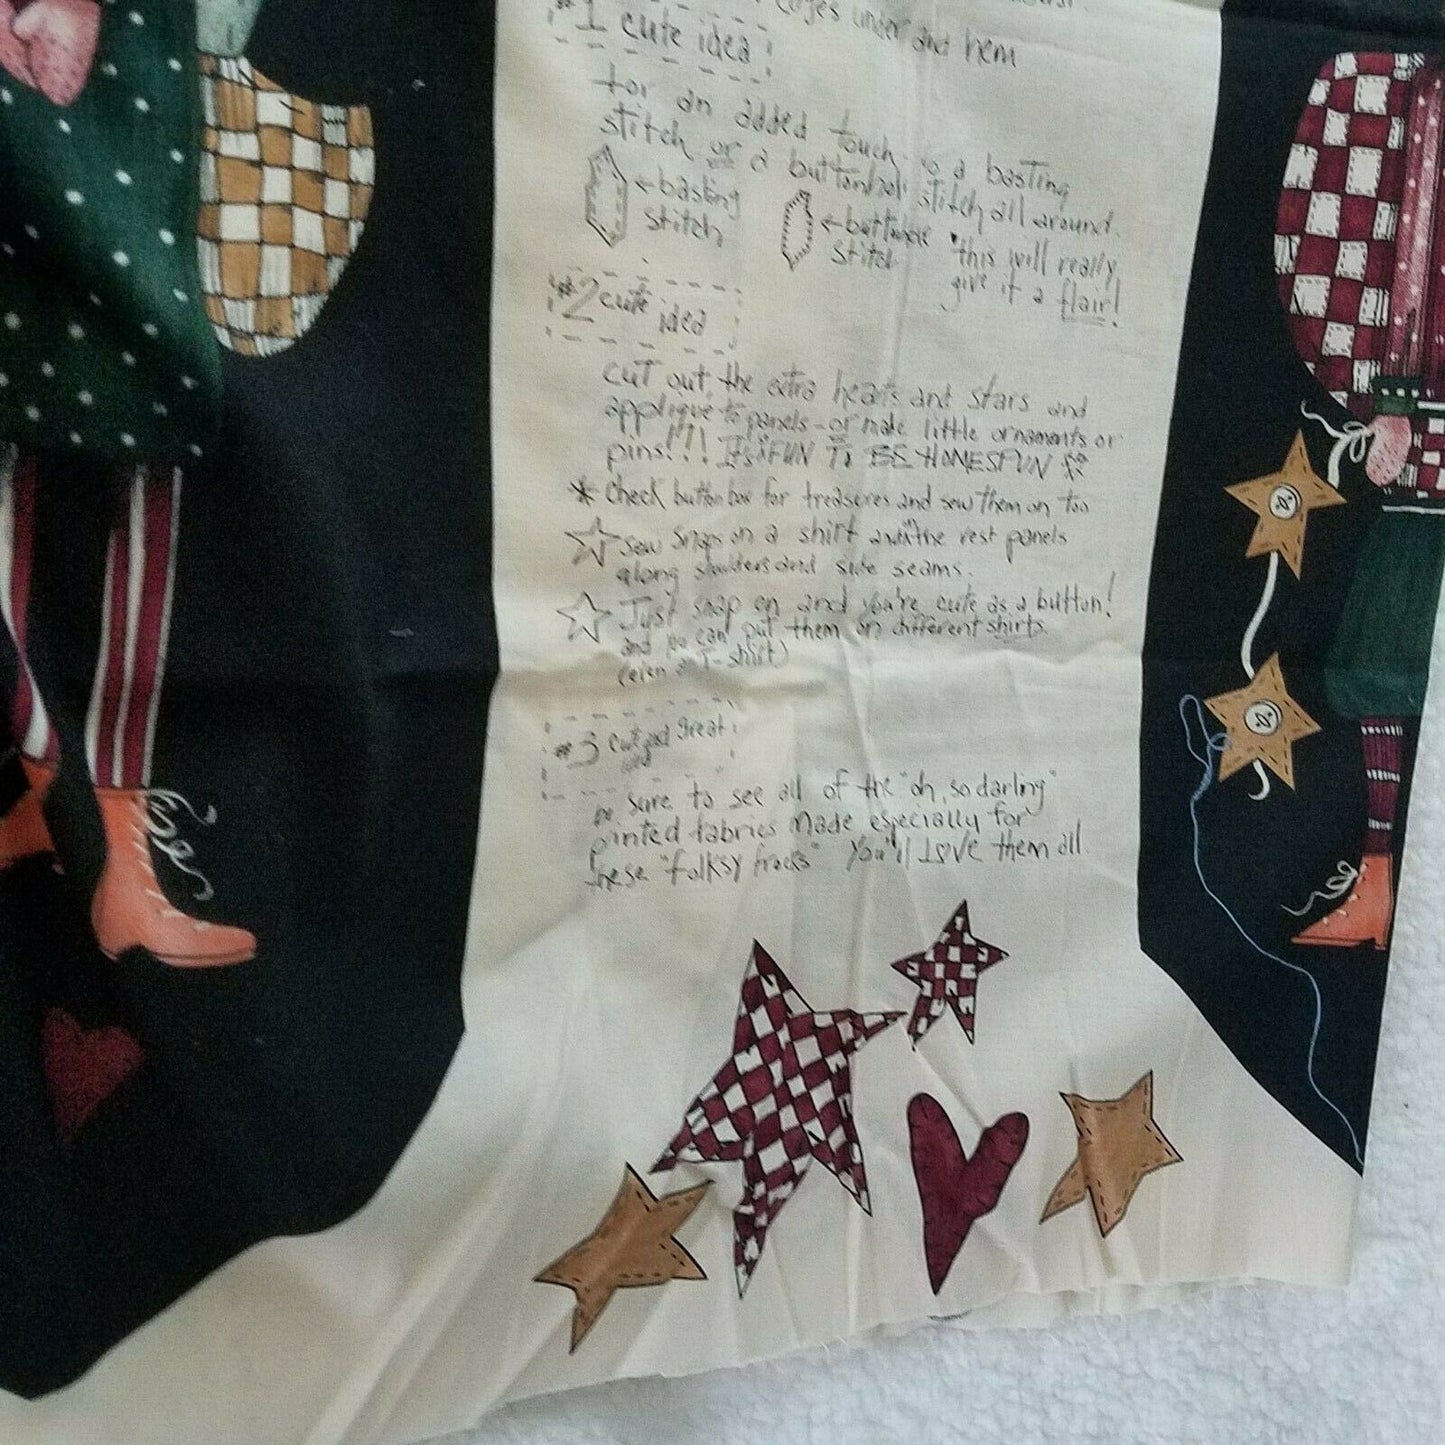 edges under and hem
#1 cute idea
for an added touch do a basting
stitch or a buttonhole stitch all around.
←basting
stitch
←buttonhole
stitch
this will really
give it a flair!
#2 cute
idea
cut out the extra hearts and stars and
applique to panels - or make little ornaments or
pins!!?! It's FUN To BE HOMESPUN
* Check button box for treasures and sew them on too
Sew snaps on a shirt and the rest panels
along shoulders and side seams.
Just snap on and you're cute as a button!
and you can put them on different shirts.
(even a T-shirt)
#3 cute and great
idea
be sure to see all of the "oh, so darling"
printed fabrics made especially for
these "folksy frocks" You'll LOVE them all.